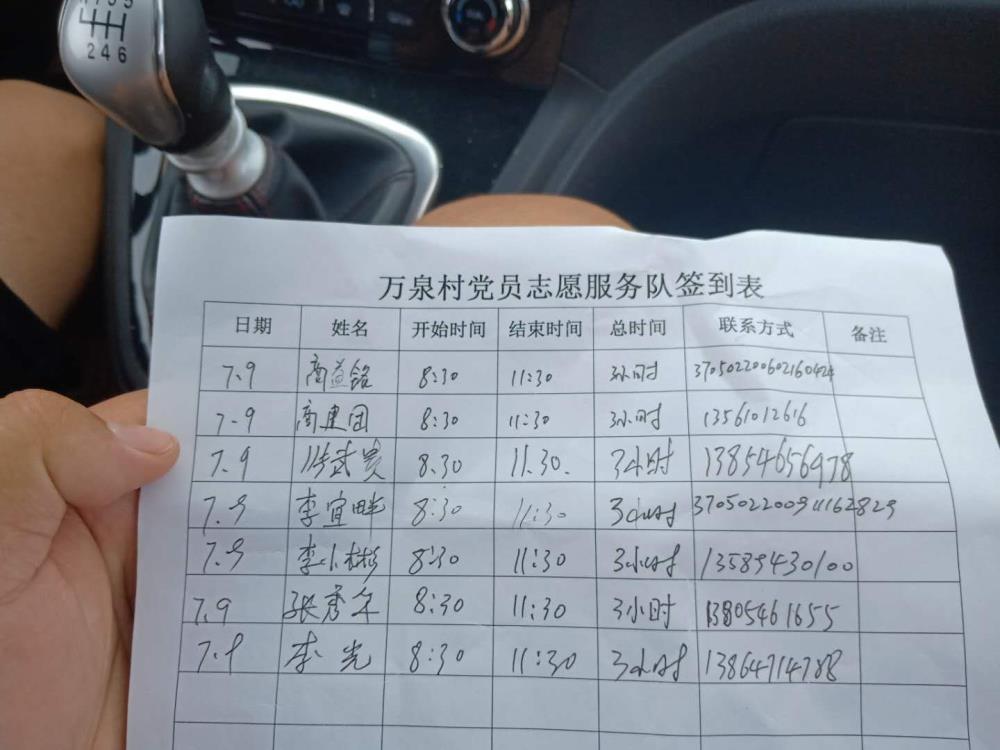 2 4 6
万泉村党员志愿服务队签到表
日期 姓名 开始时间 结束时间 总时间 联系方式 备注
7.9 商益铭 8:30 11:30 3小时 370502200602160424
7.9 商建团 8:30 11:30 3小时 13561012616
7.9 8:30 11:30. 3小时 13854656978
7.9 李宜畔 8:30 11:30 3小时 370502200911162829
7.9 李小彬 8:30 11:30 3小时 13589430100
7.9 张秀年 8:30 11:30 3小时 13805461655
7.9 李光 8:30 11:30 3小时 13864714788